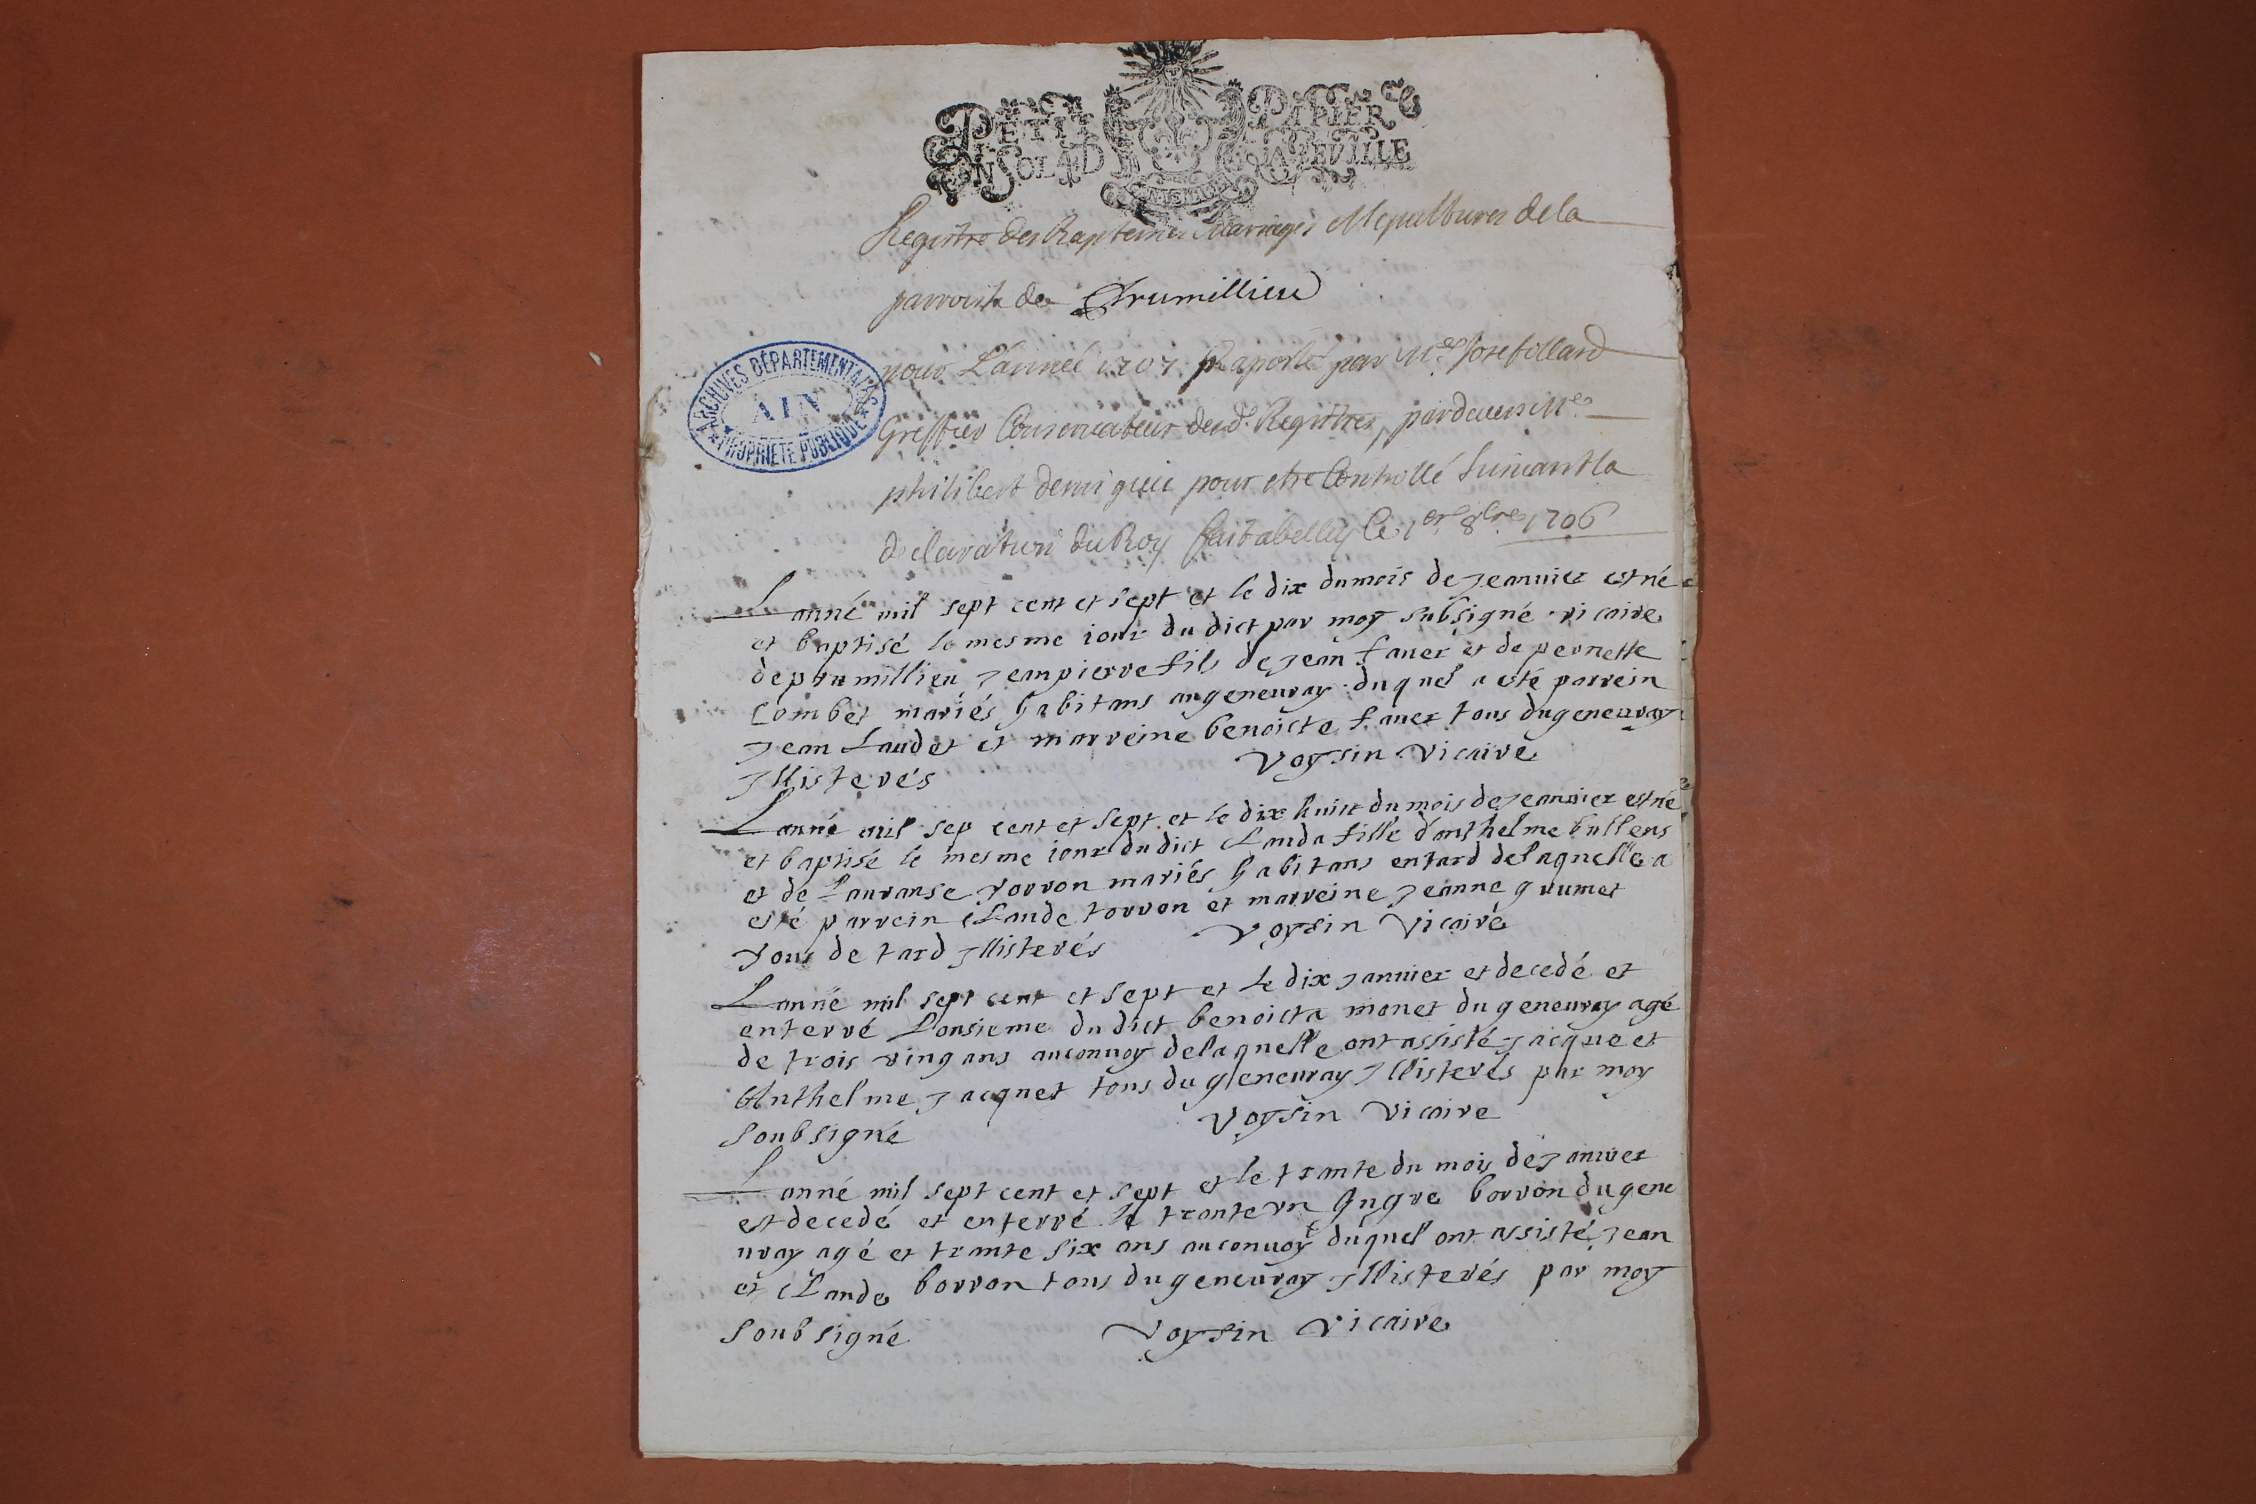 PETIT PAPIER
UN SOL 4 D LA FEVILLE
Registre des Baptemes Mariages et Sepultures de la
parroisse de Prumillieu
pour L'année 1707. Raporté par Me. Josef ollard
Greffier Conservateur des d. Registres, pardevers Me
philibert pour etre Controllé suivant la
declaration du Roy fait a belley le 1er 8bre 1706
ARCHIVES DÉPARTEMENTALES
AIN
PROPRIÉTÉ PUBLIQUE
Lanné mil sept cent et sept et le dix du mois de Jeanvier est né
et baptisé le mesme iour du dict par moy subsigné vicaire
de prumillieu Jeanpierre fils de Jean faver et de pernette
Combet mariés habitans augenevray duquel a esté parrein
Jean Laudet et marreine benoicte faver tous dugenevray
Jllisterés Voysin Vicaire
Lanné mil sep cent et sept et le dix huict du mois de Jeanvier est né
et baptisé le mesme iour du dict Clauda fille d'anthelme bullens
et de Lauranse torron mariés habitans entard delaquelle a
esté parrein Claude torron et marreine Jeanne grumet
tous de tard Jllisterés Voysin Vicaire
Lanné mil sept cent et sept et le dix Janvier et decedé et
enterré Lonsieme du dict benoicta monet du genevray agé
de trois ving ans auconvoy delaquelle ont assisté Jacque et
Anthelme Jacquet tous du genevray Jllisterés par moy
soubsigné Voysin Vicaire
Lanné mil sept cent et sept et le trante du mois de Janvier
est decedé et enterré le trante vn hugue borron du gene
uray agé et trante six ans auconvoy duquel ont assisté Jean
et Claude borron tous du genevray Jllisterés par moy
soubsigné Voysin Vicaire